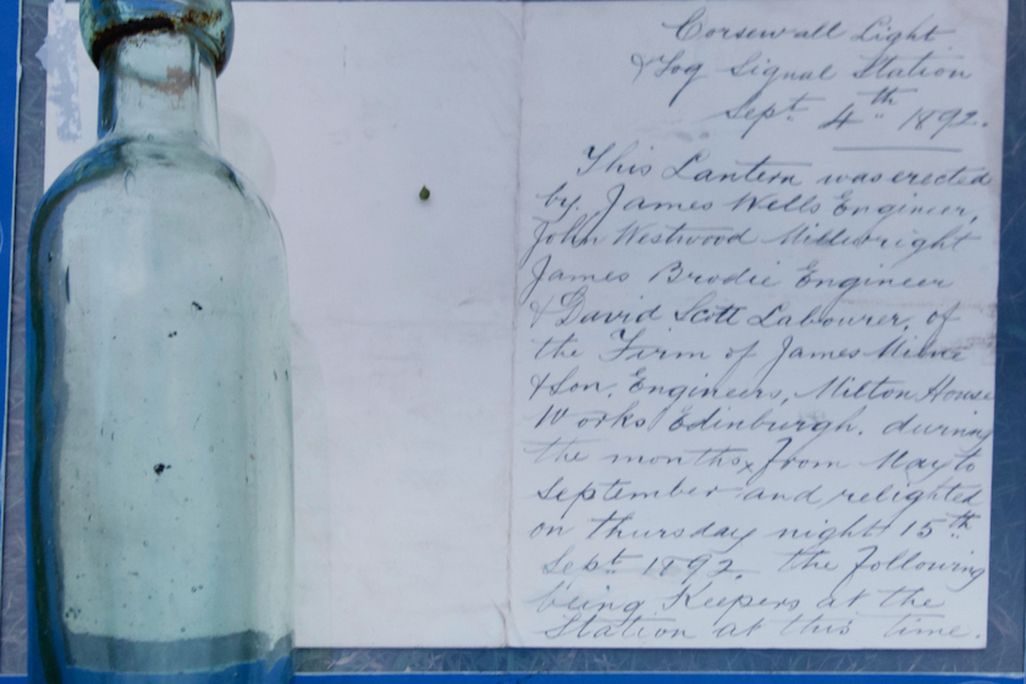 Corsewall Light
& Fog Signal Station
Sept. 4th 1892.
This Lantern was erected
by James Wells Engineer,
John Westwood Millwright
James Brodie Engineer
& David Scott Labourer, of
the Firm of James Milne
& Son, Engineers, Milton House
Works Edinburgh. during
the months from May to
September and relighted
on Thursday night 15th
Sept. 1892. The following
being Keepers at the
Station at this time.